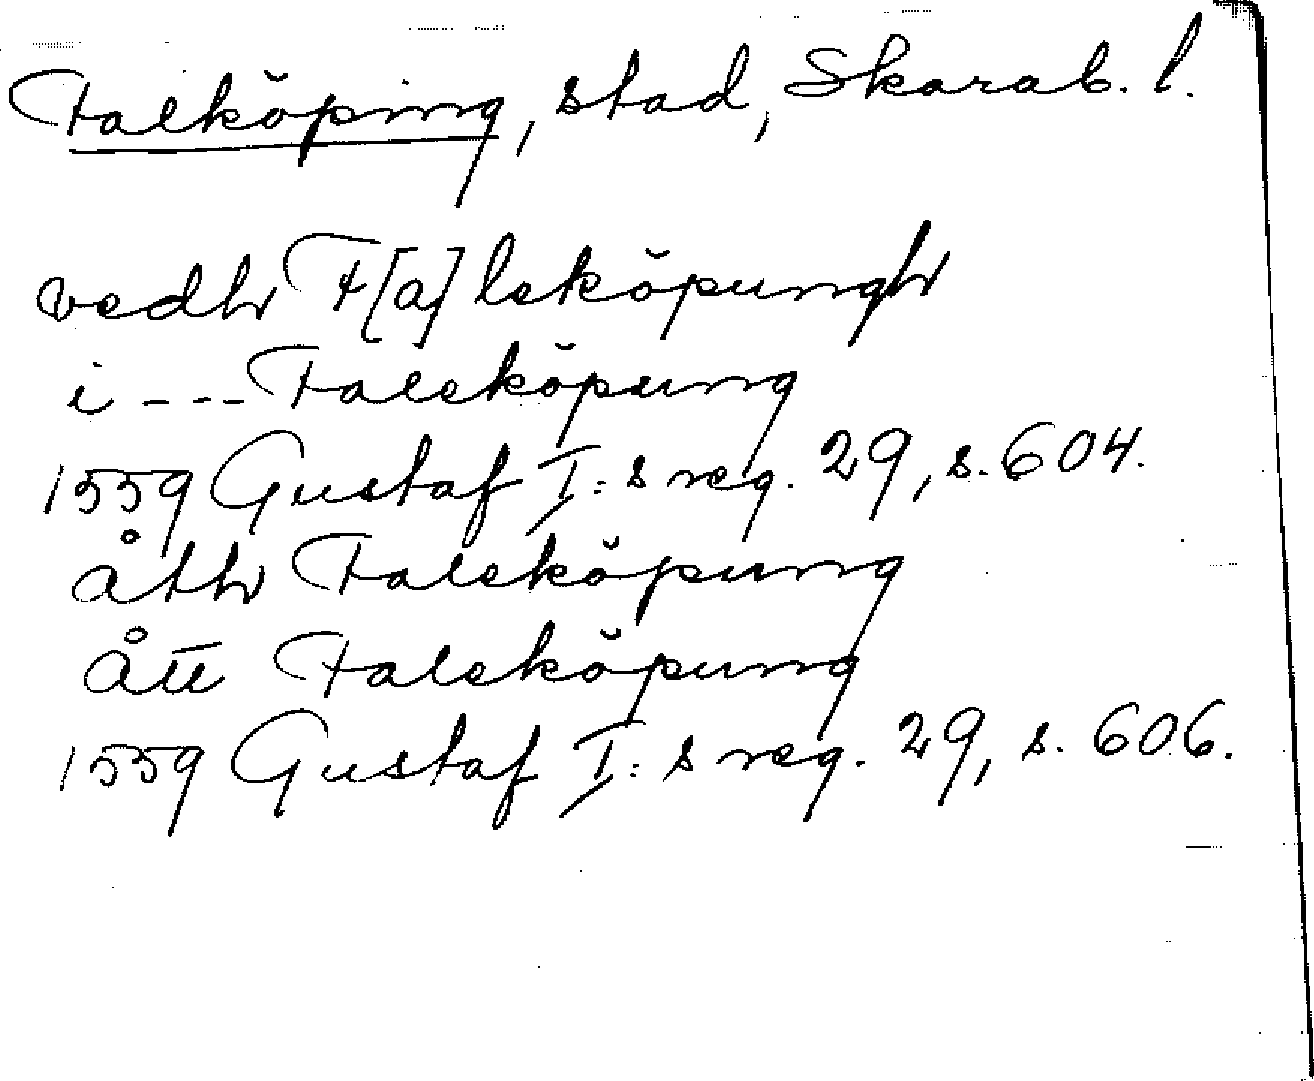 Falköping, stad, Skarab. l.
vedh F[a]leköpungh
i --- Faleköpung
1559 Gustaf I:s reg. 29, s. 604.
åth Faleköpung
ått Faleköpung
1559 Gustaf I:s reg. 29, s. 606.